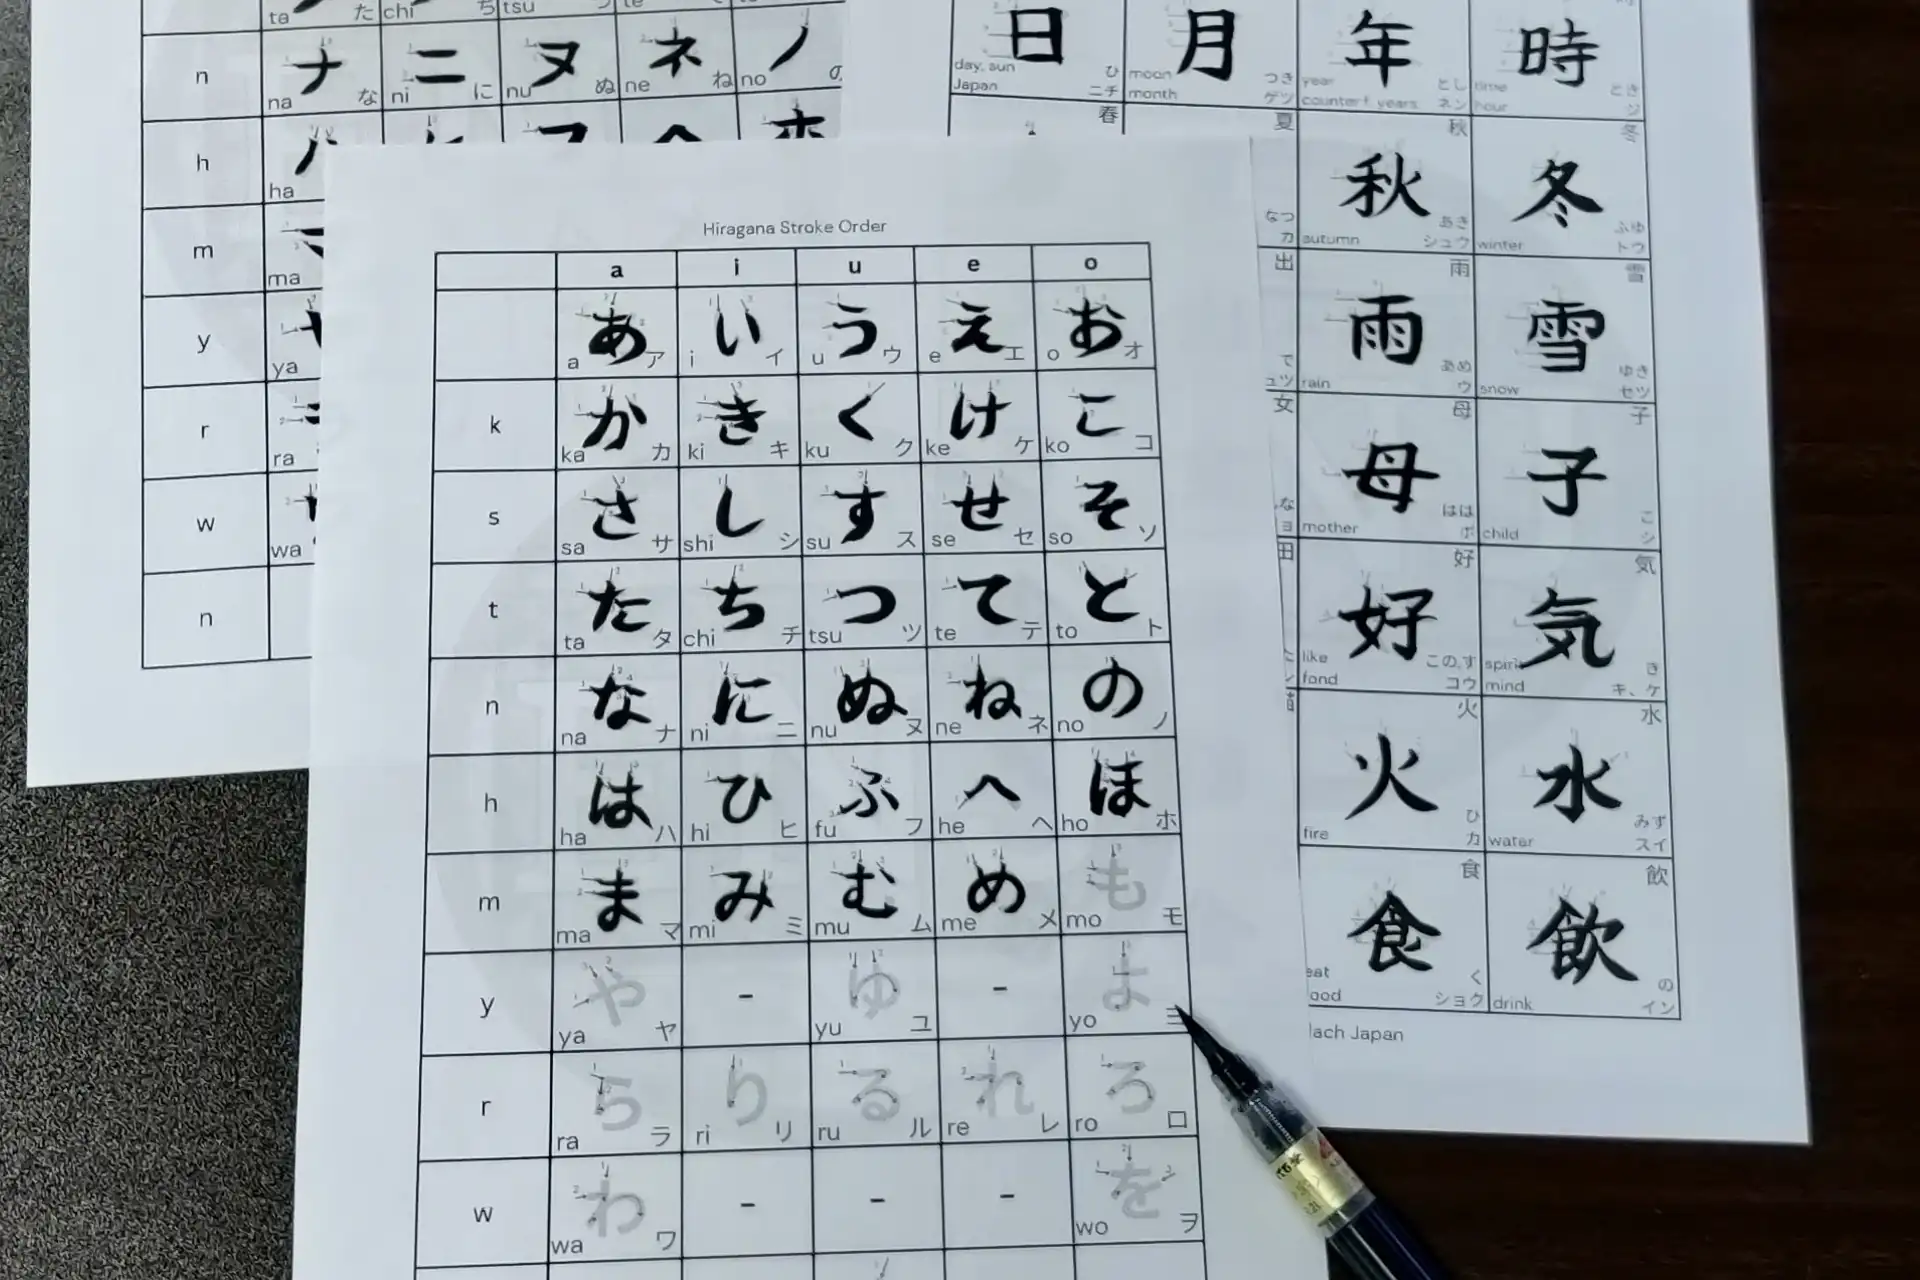 ta た chi ち tsu つ te て
n ナ ニ ヌ ネ ノ
na な ni に nu ぬ ne ね no の
h
ha
m
ma
y
ya
r
ra
w
wa
n
日 月 年 時
day, sun ひ moon つき year とし time とき
Japan ニチ month ゲツ counter f. years ネン hour ジ
春 夏 秋 冬
秋 冬
なつ あき ふゆ
カ autumn シュウ winter トウ
出 雨 雪
雨 雪
で あめ ゆき
ュツ rain ウ snow セツ
女 母 子
母 子
はは こ
mother ボ child シ
田 好 気
好 気
like この.す spirit き
fond コウ mind キ、ケ
火 水
火 水
ひ みず
fire カ water スイ
食 飲
食 飲
eat く の
ood ショク drink イン
lach Japan
Hiragana Stroke Order
a i u e o
あ い う え お
a ア i イ u ウ e エ o オ
k か き く け こ
ka カ ki キ ku ク ke ケ ko コ
s さ し す せ そ
sa サ shi シ su ス se セ so ソ
t た ち つ て と
ta タ chi チ tsu ツ te テ to ト
n な に ぬ ね の
na ナ ni ニ nu ヌ ne ネ no ノ
h は ひ ふ へ ほ
ha ハ hi ヒ fu フ he ヘ ho ホ
m ま み む め も
ma マ mi ミ mu ム me メ mo モ
y や - ゆ - よ
ya ヤ yu ユ yo ヨ
r ら り る れ ろ
ra ラ ri リ ru ル re レ ro ロ
w わ - - - を
wa ワ wo ヲ